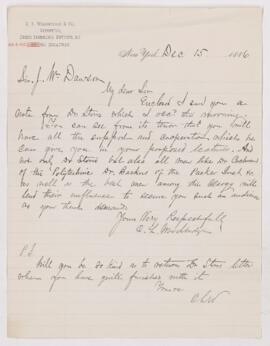 New York Dec 15 1886
Sir J. Wm Dawson
My dear Sir
Enclosed I send you a
note from Dr Storrs which I rec'd this morning.
You can see from its tenor that you will
have all the support and cooperation which he
can give you in your proposed lectures. And
not only Dr Storrs but also all men like Dr Cochran
of the Polytechnic Dr Backus of the Packer Inst &c
as well as the best men among the clergy will
lend their influence to secure you such an audience
as your theme demands.
Yours Very Respectfully
P.S.
Will you be so kind as to return Dr Storrs letter
when you have quite finished with it
Yours